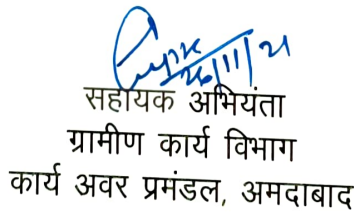 26/11/21
सहायक अभियंता
ग्रामीण कार्य विभाग
कार्य अवर प्रमंडल, अमदाबाद